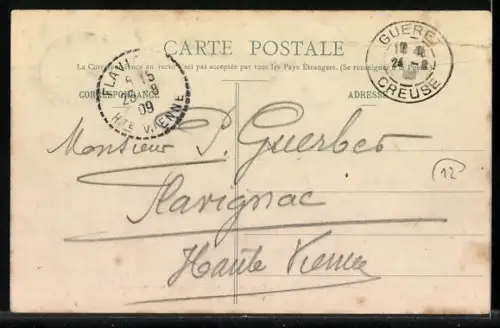 CARTE POSTALE
La Correspondance au recto n'est pas acceptée par tous les Pays Étrangers. (Se renseigner à la Poste)
CORRESPONDANCE
ADRESSE
FLAVI
8 15
25 9
09
HTE VIENNE
GUERET
12
24
CREUSE
Monsieur P. Guerbes
Flavignac
Haute Vienne
12